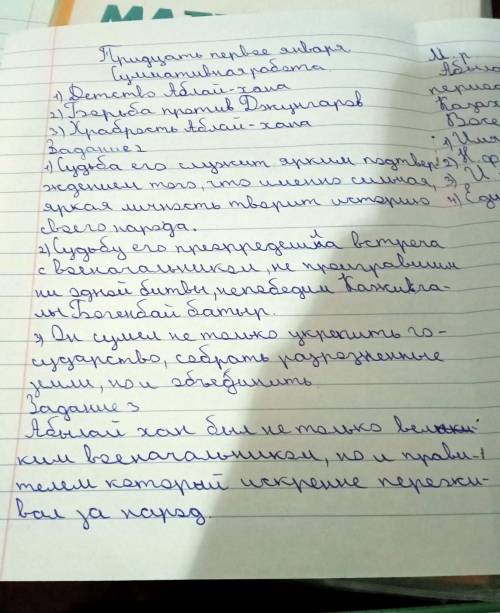 МАТ
Тридцать первое января.
Суммативная работа
1) Детство Аблай-хана
2) Борьба против Джунгаров
3) Храбрость Аблай-хана
Задание 2
1) Судьба его служит ярким подтвер
ждением того, что именно сильная,
яркая личность творит историю
своего народа.
2) Судьбу его препредешила встреча
с военачальником, не проигравшим
ни одной битвы, непобедим
Богенбай батыр.
3) Он сумел не только укрепить го-
сударство, собрать разрозненные
земли, но и объединить
Задание 3
Абылай хан был не только вели
ким военачальником, но и прави-
телем который искренне пережи-
вал за народ.
М.р
период
Казах
1)
2) К
3) И
4)